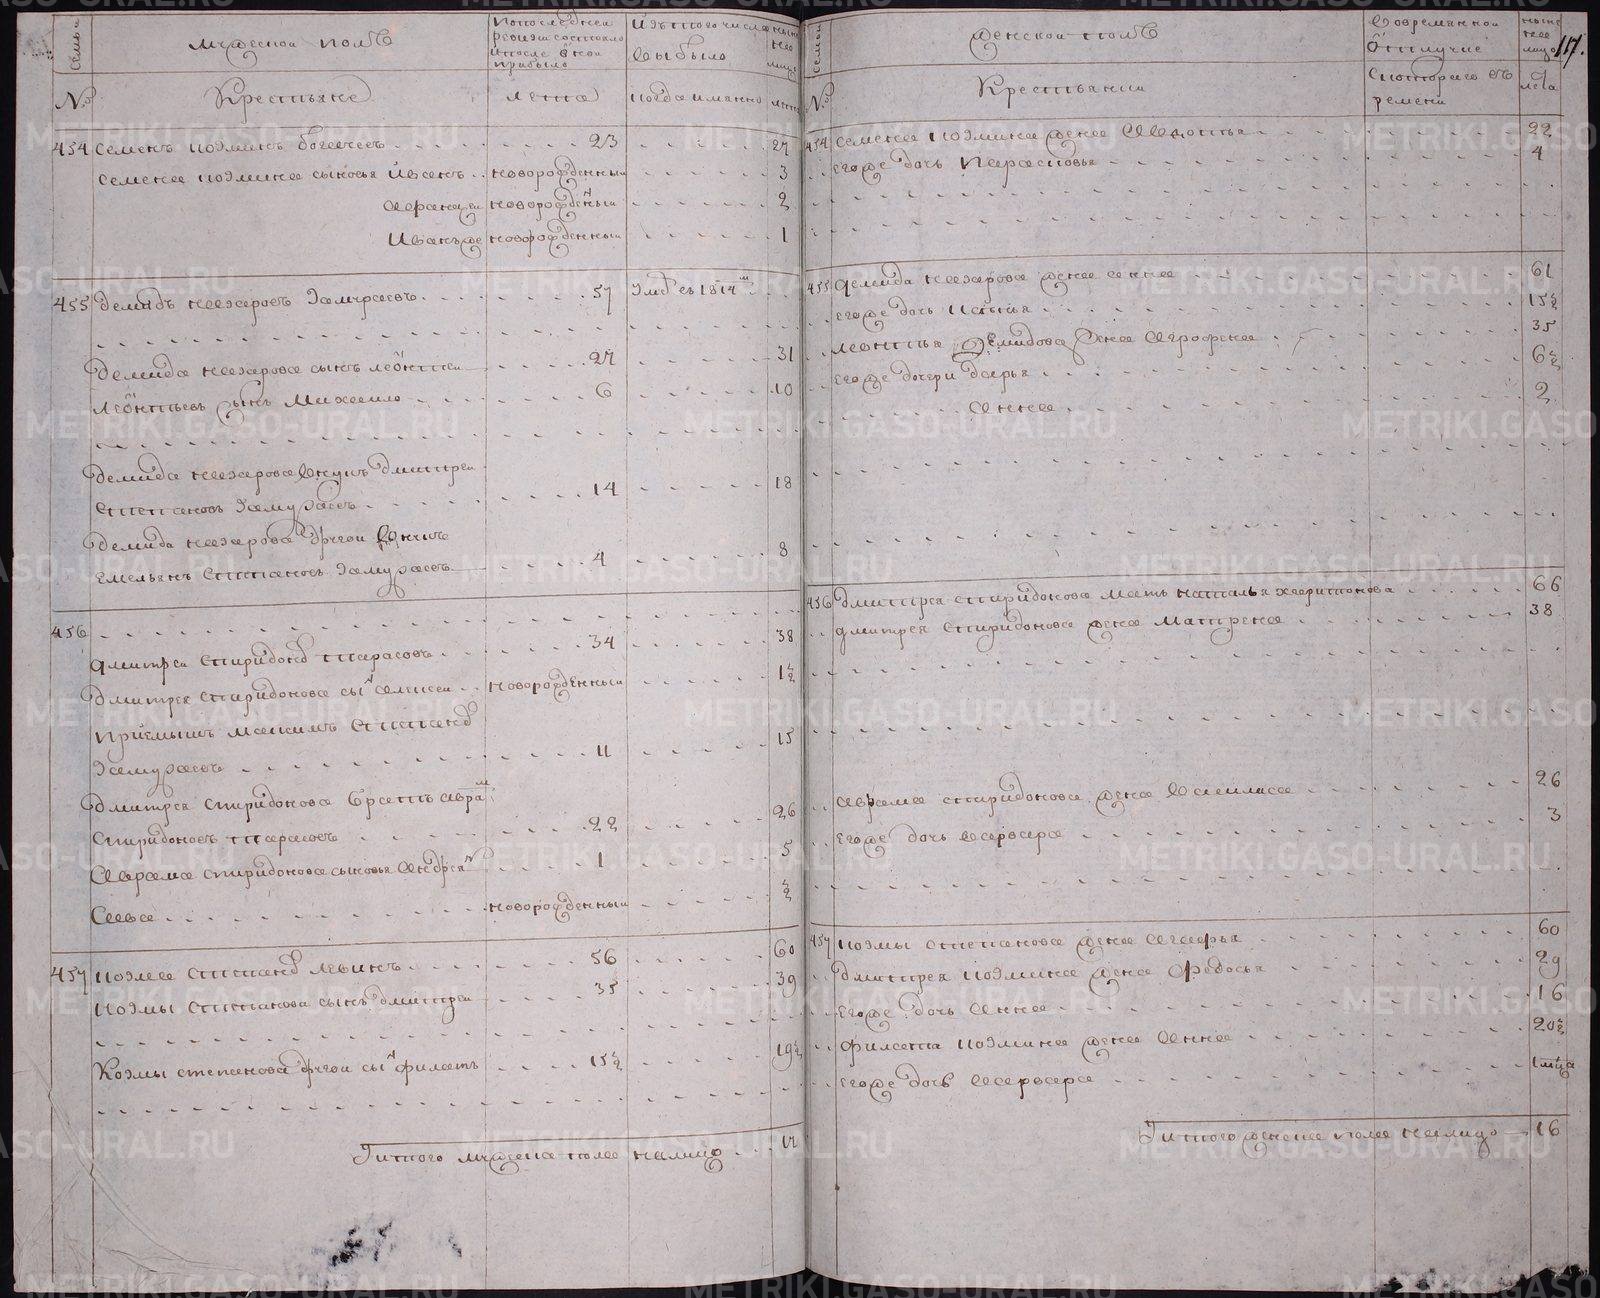 Семьи
Мужеской полъ
По последней ревизии состояло и после оной прибыло
Изъ того числа выбыло
ныне на лицо
№
Крестьяне
лета
когда именно
лета
454 Семенъ Козминъ 23 27
Семена Козмина сыновья Иванъ новорожденный 3
новорожденный 2
Иванъ же новорожденный 1
455 Демидъ Назаровъ Замураевъ 57 Умръ въ 1814м
Демида Назарова сынъ Леонтей 27 31
Леонтьевъ сынъ Михаило 6 10
Демида Назарова внукъ Дмитрей
Степановъ Замураевъ 14 18
Демида Назарова другой внукъ
Емельянъ Степановъ Замураевъ 4 8
456
Дмитрей Спиридоновъ Тарасовъ 34 38
Дмитрея Спиридонова сынъ Алексей новорожденный 1½
Приемышъ Максимъ Степановъ
Замураевъ 11 15
Дмитрея Спиридонова братъ Аврамъ
Спиридоновъ Тарасовъ 22 26
Аврама Спиридонова сыновья Андреянъ 1 5
Савва новорожденный ½
457 Козма Степановъ Левинъ 56 60
Козмы Степанова сынъ Дмитрей 35 39
Козмы Степанова другой сынъ Филатъ 15½ 19½
Итого мужеска пола налицо 17
117.
Семьи
Женской полъ
Во временной отлучке
ныне на лицо
№
Крестьянки
С котораго времени
лета
454 Семена Козмина жена Авдотья 22
Его же дочь Парасковья 4
455 Демида Назарова жена Анна 61
Его же дочь 15½
Леонтья Демидова жена Аграфена 35
Его же дочери Дарья 6½
Анна 2
456 Дмитрея Спиридонова мать Наталья Харитонова 66
Дмитрея Спиридонова жена Матрена 38
Аврама Спиридонова жена Василиса 26
Его же дочь Варвара 3
457 Козмы Степанова жена Агафья 60
Дмитрея Козмина жена Федосья 29
Его же дочь Анна 16
Филата Козмина жена Анна 20½
Его же дочь Варвара 1 мца
Итого женска пола налицо 16
METRIKI.GASO-URAL.RU